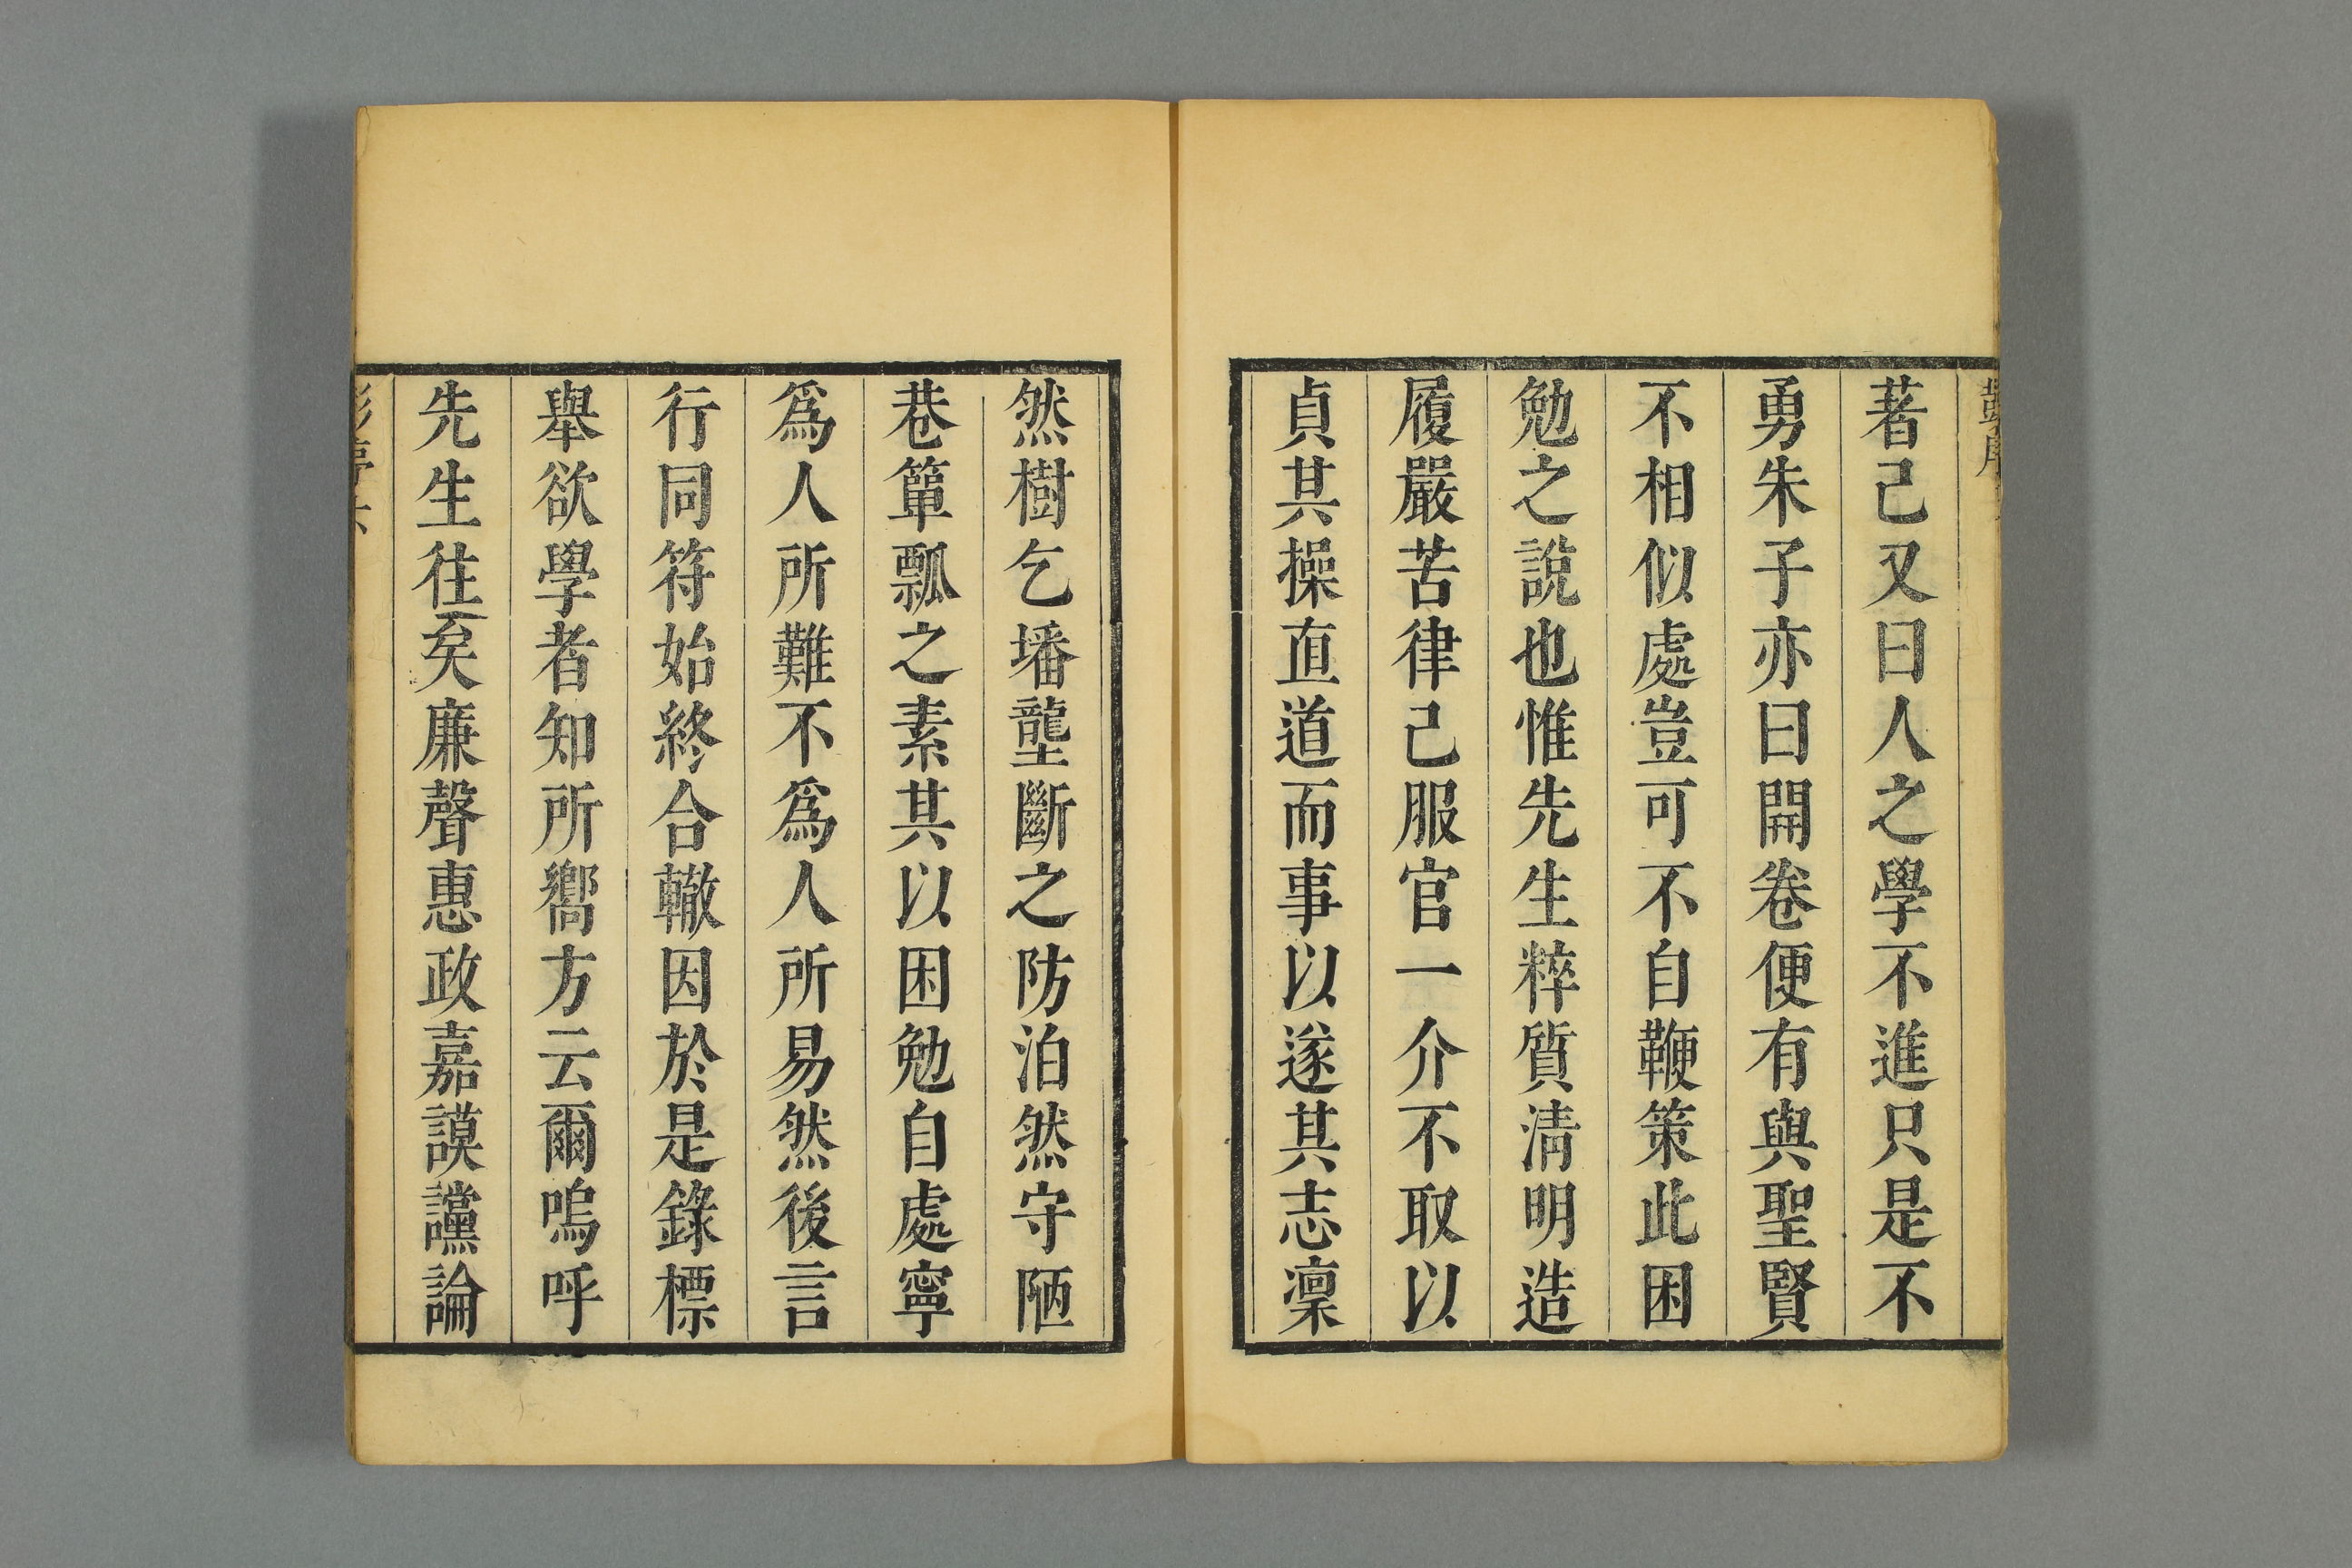 著己又曰人之學不進只是不
勇朱子亦曰開卷便有與聖賢
不相似處豈可不自鞭策此困
勉之說也惟先生粹質清明造
履嚴苦律己服官一介不取以
貞其操直道而事以遂其志凛
然樹乞墦壟斷之防泊然守陋
巷簞瓢之素其以困勉自處寧
爲人所難不爲人所易然後言
行同符始終合轍因於是錄標
舉欲學者知所嚮方云爾嗚呼
先生往矣廉聲惠政嘉謨讜論